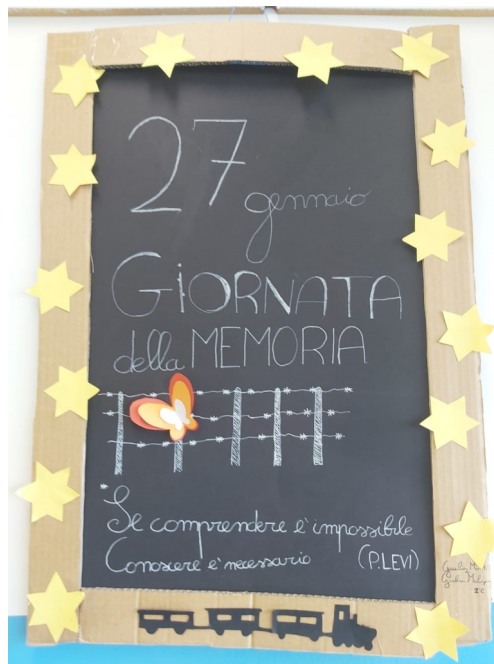 27
gennaio
GIORNATA
della MEMORIA
Se comprendere è impossibile
Conoscere è necessario (P.LEVI)